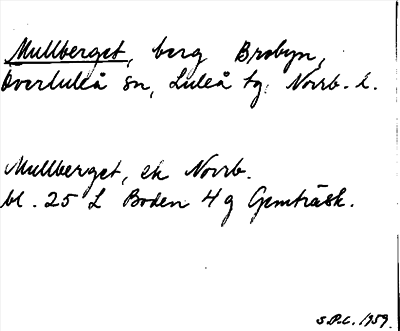 Mullberget, berg Brobyn,
Överluleå sn, Luleå tg. Norrb. l.
Mullberget, ek Norrb.
bl. 25 L Boden 4 g Gemträsk.
S.P.L. 1959.